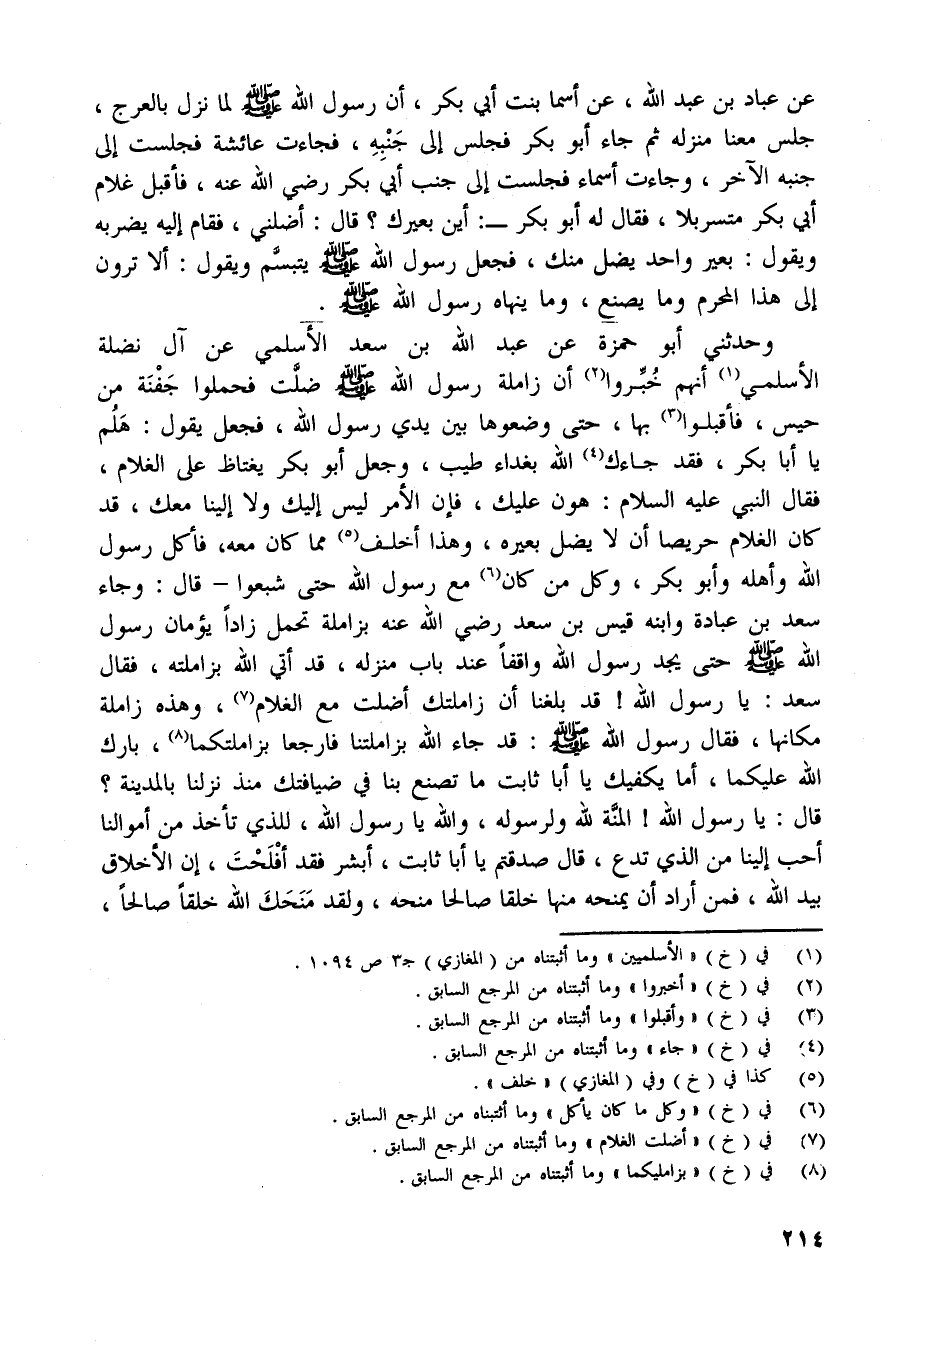 عن عباد بن عبد الله ، عن أسما بنت أبي بكر ، أن رسول الله ﷺ لما نزل بالعرج ،
جلس معنا منزله ثم جاء أبو بكر فجلس إلى جَنْبِهِ ، فجاءت عائشة فجلست إلى
جنبه الآخر ، وجاءت أسماء فجلست إلى جنب أبي بكر رضي الله عنه ، فأقبل غلام
أبي بكر متسربلا ، فقال له أبو بكر ــ: أين بعيرك ؟ قال : أضلني ، فقام إليه يضربه
ويقول : بعير واحد يضل منك ، فجعل رسول الله ﷺ يتبسَّم ويقول : ألا ترون
إلى هذا المحرم وما يصنع ، وما ينهاه رسول الله ﷺ .
وحدثني أبو حمزة عن عبد الله بن سعد الأسلمي عن آل نضلة
الأسلمي(١) أنهم خُبِّروا(٢) أن زاملة رسول الله ﷺ ضلَّت فحملوا جَفْنَة من
حيس ، فأقبلوا(٣) بها ، حتى وضعوها بين يدي رسول الله ، فجعل يقول : هَلُم
يا أبا بكر ، فقد جاءك(٤) الله بغداء طيب ، وجعل أبو بكر يغتاظ على الغلام ،
فقال النبي عليه السلام : هون عليك ، فإن الأمر ليس إليك ولا إلينا معك ، قد
كان الغلام حريصا أن لا يضل بعيره ، وهذا أخلف(٥) مما كان معه، فأكل رسول
الله وأهله وأبو بكر ، وكل من كان(٦) مع رسول الله حتى شبعوا – قال : وجاء
سعد بن عبادة وابنه قيس بن سعد رضي الله عنه بزاملة تحمل زاداً يؤمان رسول
الله ﷺ حتى يجد رسول الله واقفاً عند باب منزله ، قد أتي الله بزاملته ، فقال
سعد : يا رسول الله ! قد بلغنا أن زاملتك أضلت مع الغلام(٧) ، وهذه زاملة
مكانها ، فقال رسول الله ﷺ : قد جاء الله بزاملتنا فارجعا بزاملتكما(٨) ، بارك
الله عليكما ، أما يكفيك يا أبا ثابت ما تصنع بنا في ضيافتك منذ نزلنا بالمدينة ؟
قال : يا رسول الله ! المنَّة لله ولرسوله ، والله يا رسول الله ، للذي تأخذ من أموالنا
أحب إلينا من الذي تدع ، قال صدقتم يا أبا ثابت ، أبشر فقد أفْلَحْتَ ، إن الأخلاق
بيد الله ، فمن أراد أن يمنحه منها خلقا صالحا منحه ، ولقد مَنَحَكَ الله خلقاً صالحاً ،
(١) في ( خ ) « الأسلميين » وما أثبتناه من ( المغازي ) جـ٣ ص ١٠٩٤ .
(٢) في ( خ ) « أخبروا » وما أثبتناه من المرجع السابق .
(٣) في ( خ ) « وأقبلوا » وما أثبتناه من المرجع السابق .
(٤) في ( خ ) « جاء » وما أثبتناه من المرجع السابق .
(٥) كذا في ( خ ) وفي ( المغازي ) « خلف » .
(٦) في ( خ ) « وكل ما كان يأكل » وما أثبتناه من المرجع السابق .
(٧) في ( خ ) « أضلت الغلام » وما أثبتناه من المرجع السابق .
(٨) في ( خ ) « بزامليكما » وما أثبتناه من المرجع السابق .
٢١٤